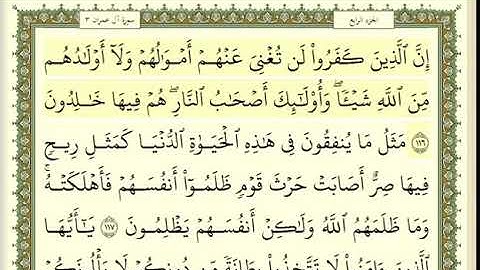 سورة آل عمران ٣ الجزء الرابع
إِنَّ ٱلَّذِينَ كَفَرُوا۟ لَن تُغْنِىَ عَنْهُمْ أَمْوَٰلُهُمْ وَلَآ أَوْلَٰدُهُم
مِّنَ ٱللَّهِ شَيْـًٔا ۖ وَأُو۟لَٰٓئِكَ أَصْحَٰبُ ٱلنَّارِ ۖ هُمْ فِيهَا خَٰلِدُونَ
١١٦ مَثَلُ مَا يُنفِقُونَ فِى هَٰذِهِ ٱلْحَيَوٰةِ ٱلدُّنْيَا كَمَثَلِ رِيحٍ
فِيهَا صِرٌّ أَصَابَتْ حَرْثَ قَوْمٍ ظَلَمُوٓا۟ أَنفُسَهُمْ فَأَهْلَكَتْهُ ۚ
وَمَا ظَلَمَهُمُ ٱللَّهُ وَلَٰكِنْ أَنفُسَهُمْ يَظْلِمُونَ ١١٧ يَٰٓأَيُّهَا